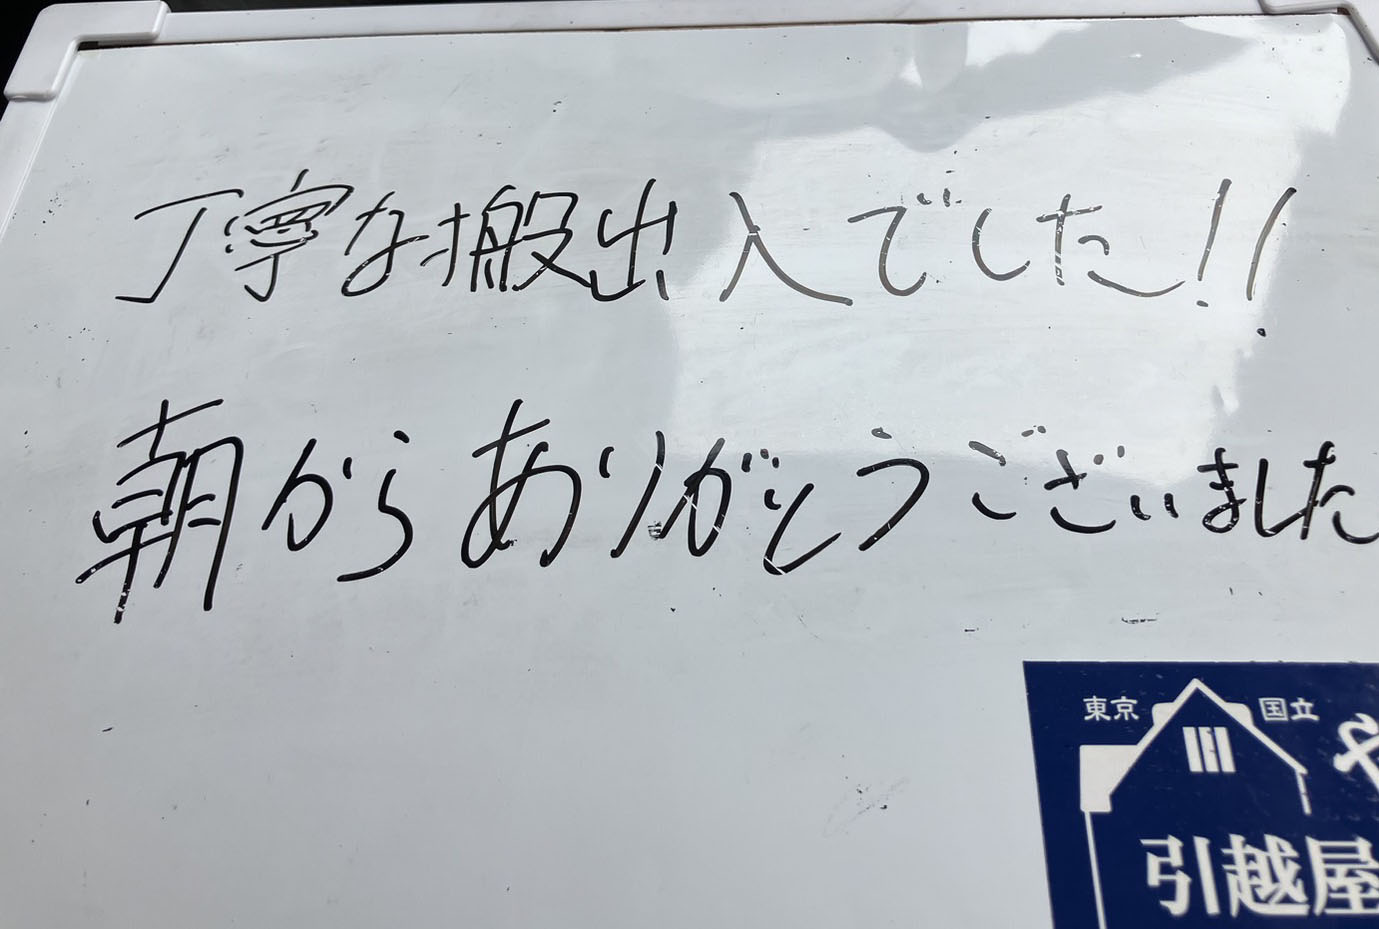 丁寧な搬出入でした!!
朝からありがとうございました
東京 国立
引越屋